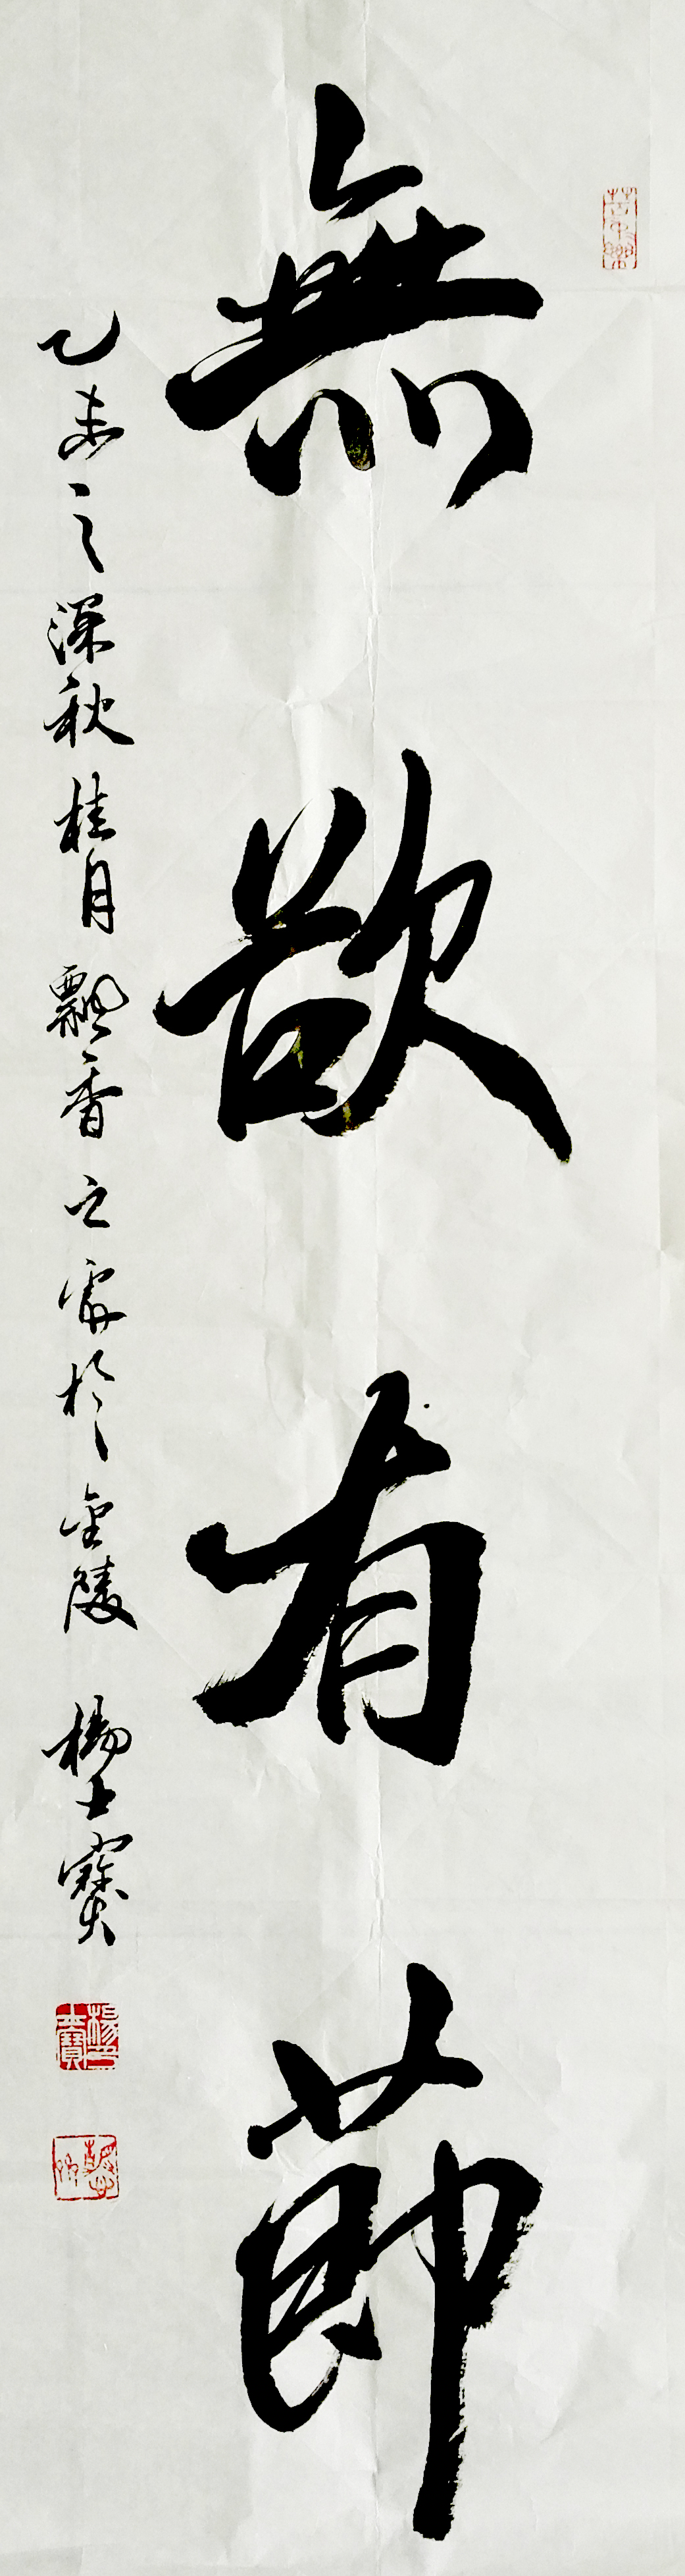 無欲有節
乙未之深秋桂月飄香之際於金陵 楊士寶
楊士寶